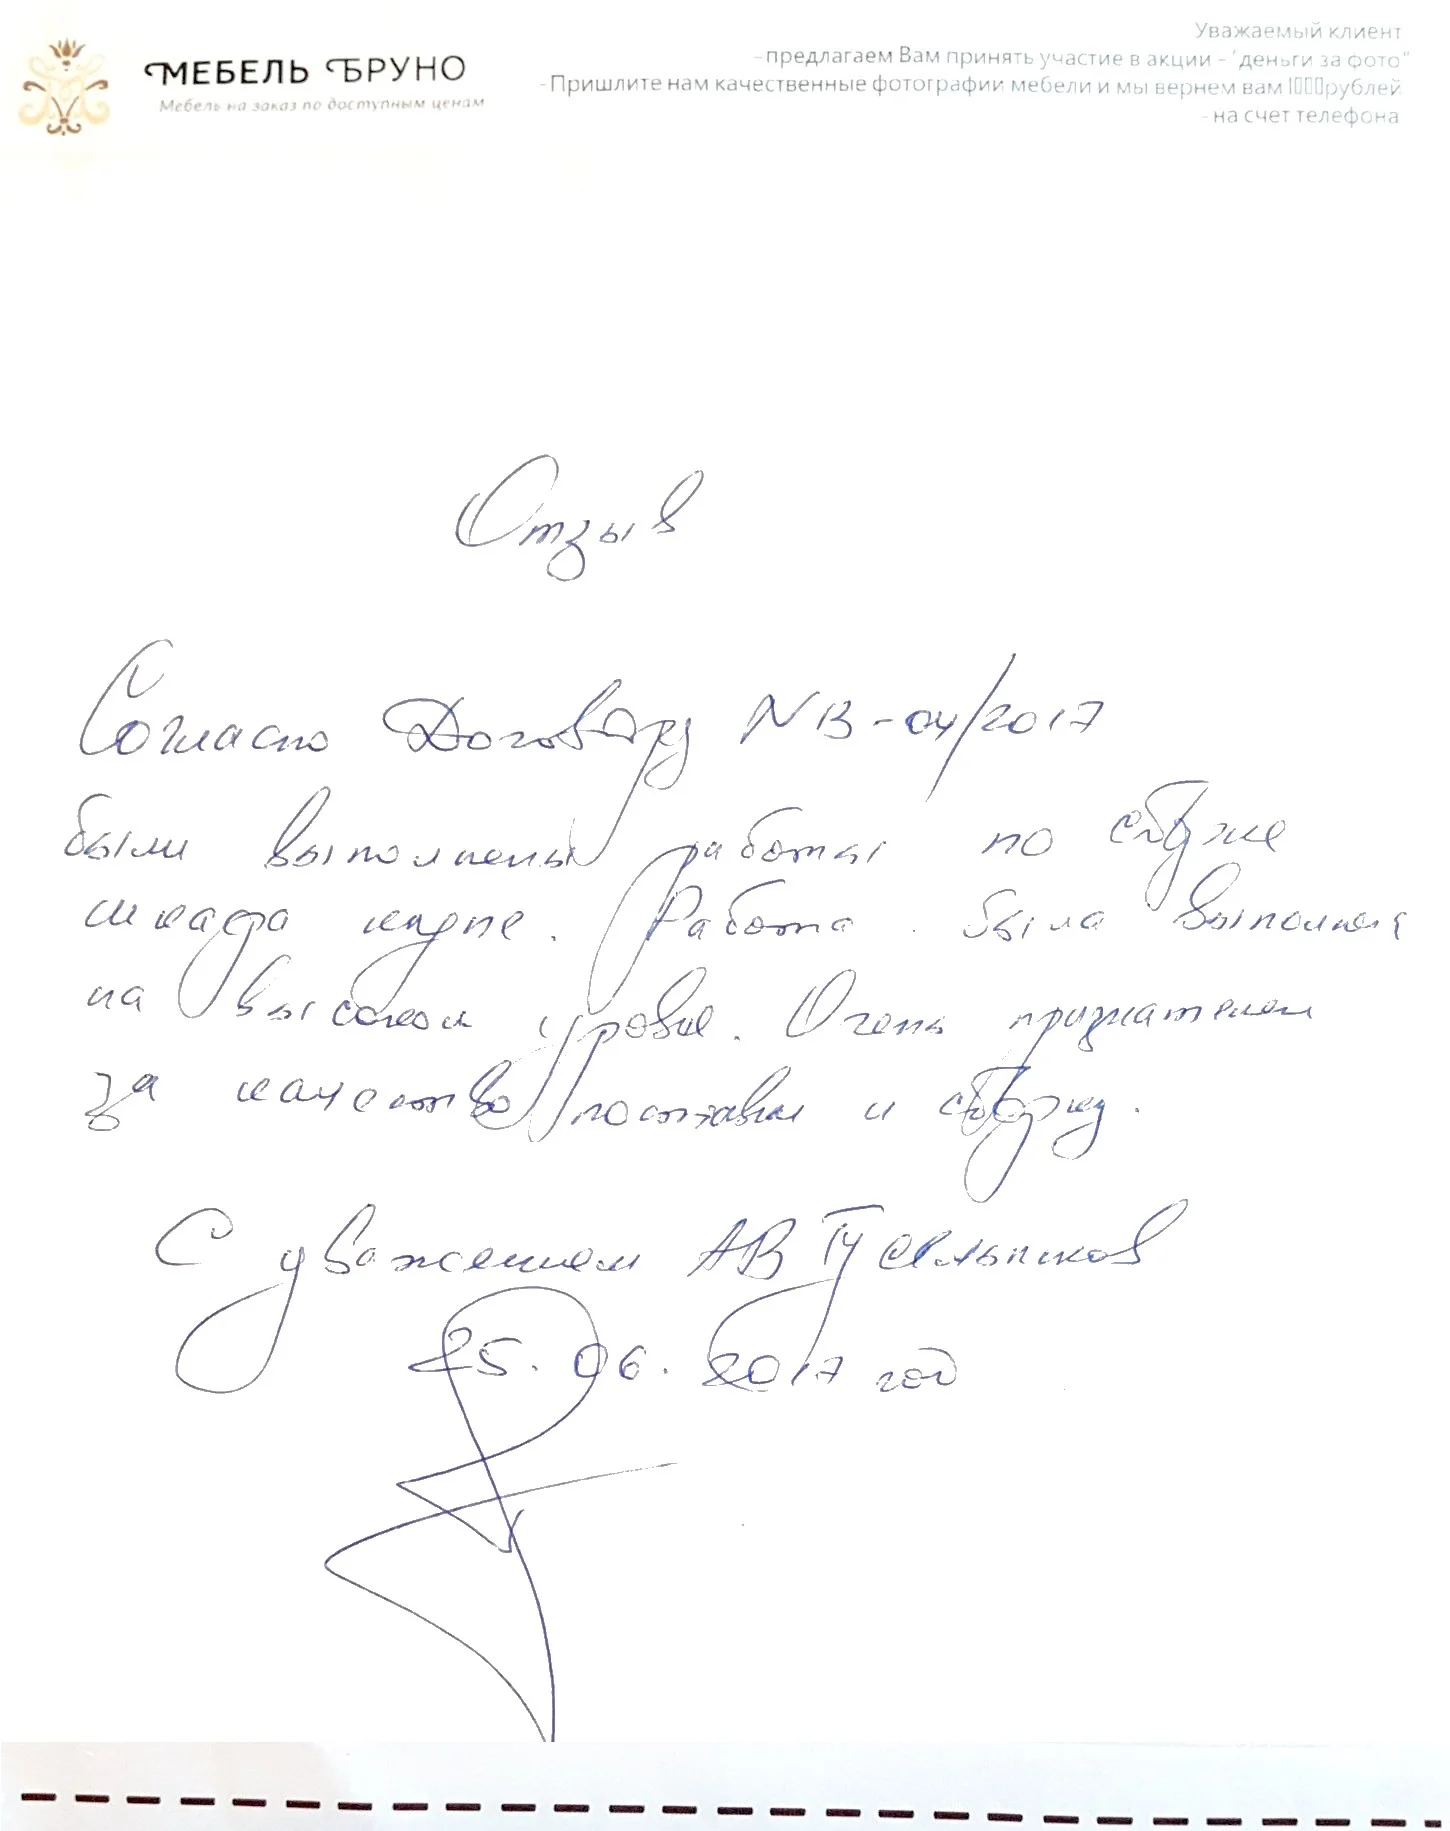 МЕБЕЛЬ БРУНО
Мебель на заказ по доступным ценам
Уважаемый клиент
-предлагаем Вам принять участие в акции - "деньги за фото"
-Пришлите нам качественные фотографии мебели и мы вернем вам 1▯▯▯рублей
- на счет телефона
Отзыв
Согласно Договору NB-04/2017
были выполнены работы по сборке
шкафа купе. Работа была выполнена
на высоком уровне. Очень признателен
за качество поставки и сборку.
С уважением АВ Гусельников
25.06.2017 год